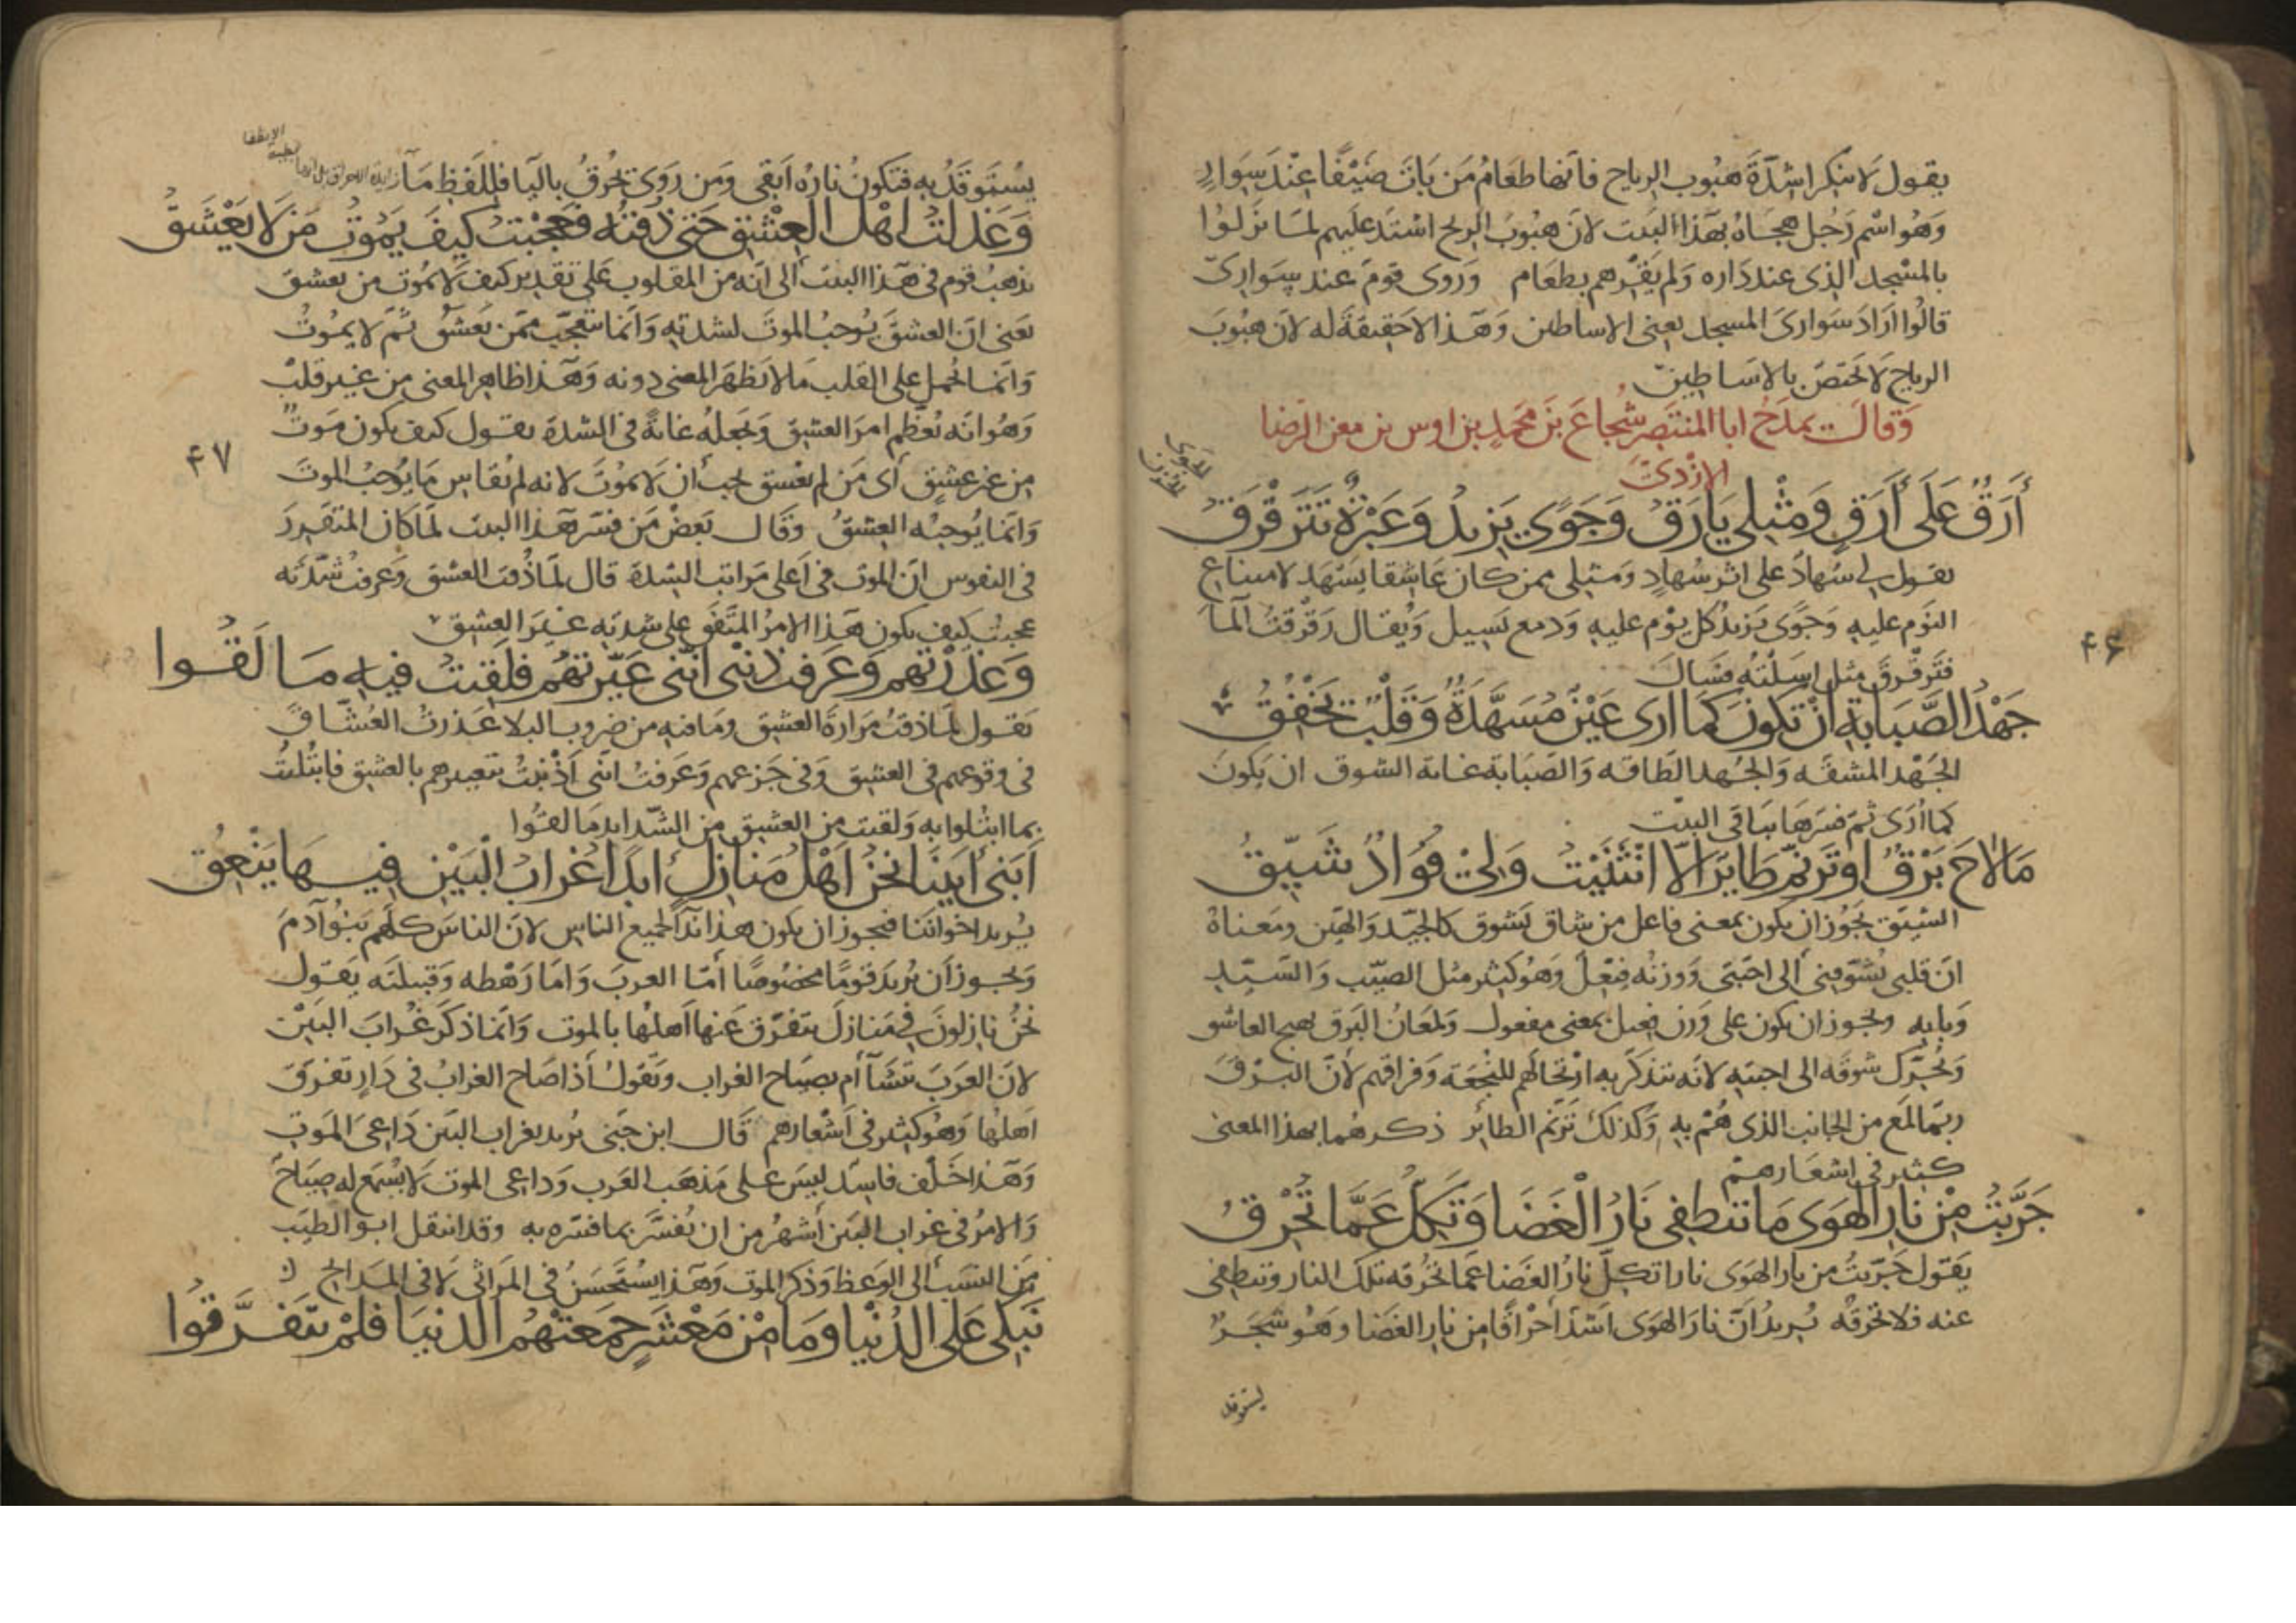 يقول لا تنكرا شدّة هبوب الرياح فانها طعام من بات ضيفا عند سوار
وهو اسم رجل هجاه بهذا البيت لان هبوب الريح اشتد عليهم لما نزلوا
بالمسجد الذى عند داره ولم يقرهم بطعام وروى قوم عند سوارىّ
قالوا اراد سوارى المسجد يعنى الاساطين وهذا لا حقيقة له لان هبوب
الرياح لا تختصّ بالاساطين
وقالــ يمدح ابا المنتصر شجاع بن محمد بن اوس بن معن الرضا
الازدىّ
أَرَقٌ عَلَى أَرَقٍ وَمِثْلِي يَأرَقُ وَجَوًى يَزِيدُ وَعَبْرَةٌ تَتَرَقْرَقُ
الجوى
الحزن
يقول لى سهاد على اثر سهاد ومثلى ممن كان عاشقا يسهد لامتناع
النوم عليه وجوًى يزيد كل يوم عليه ودمع يسيل ويقال رقرقت الماء
فترقرق مثل اسلته فسال
جَهْدُ الصَّبَابَةِ انْ تَكُونَ كَمَا ارى عَيْنٌ مُسَهَّدَةٌ وَقَلْبٌ يَخْفُقُ
الجَهْد المشقه والجُهد الطاقه والصبابة غاية الشوق ان يكون
كما أرى ثم فسرها بباقى البيت
مَا لاحَ بَرْقٌ اوْ تَرَنَّمَ طَايِرٌ الّا انْثَنَيْتُ وَلِىْ فُوَادٌ شَيِّقُ
الشيّق يجوز ان يكون بمعنى فاعل من شاق يشوق كالجيّد والهيّن ومعناه
انّ قلبى يشوّقنى الى احبّتى ووزنه فيعل وهو كثير مثل الصيّب والسيّد
وبابه ويجوز ان يكون على وزن فعيل بمعنى مفعول ولمعان البرق يهيج العاشق
ويحرّك شوقه الى احبته لانه يتذكر به ارتحالهم للنجعة وفراقهم لانّ البرق
ربّما لمع من الجانب الذى هُمْ به وكذلك ترنّم الطائر ذكرهما بهذا المعنى
كثير فى اشعارهم
جَرَّبْتُ مِنْ نَارِ الْهَوَى مَا تَنْطَفِى نَارُ الْغَضَا وَتَكِلُّ عَمَّا تُحْرِقُ
يقول جرّبتُ من نار الهوى نارا تكلّ نار الغضا عمّا تحرقه تلك النار وتنطفى
عنه فلا تحرقه يريد انّ نار الهوى اشدّ احراقا من نار الغضا وهو شجر
يستوقد
۴۶
يُستوقدُ به فتكون ناره ابقى ومن روى يحرق باليا فللفظ ما
وَعَذَلْتُ اهْلَ الْعِشْقِ حَتَّى ذُقْتُهُ فَعَجِبْتُ كَيْفَ يَمُوتُ مَنْ لَا يَعْشَقُ
يذهب قوم فى هذا البيت الى انه من المقلوب على تقدير كيف لا يموت من يعشق
يعنى انّ العشق يوجب الموت لشدته وانما يتعجب ممن يعشق ثمّ لا يموت
وانما يحمل على القلب ما لا يظهر المعنى دونه وهذا ظاهر المعنى من غير قلب
وهو انه يعظّم امر العشق ويجعله غاية فى الشدة يقول كيف يكون موت
من غير عشق أى من لم يعشق يجب أن لا يموت لانه لم يقاس ما يوجب الموت
وانما يوجبه العشق وقال بعض من فسر هذا البيت لما كان المتقرر
فى النفوس انّ الموت فى اعلى مراتب الشدة قال لما ذقت العشق وعرفت شدّته
عجبت كيف يكون هذا الامر المتفق على شدته غير العشق
وَعَذَرْتُهُمْ وَعَرَفْتُ ذَنْبِى انَّنِى عَيَّرْتُهُمْ فَلَقِيتُ فِيهِ مَا لَقُوا
يقول لما ذقت مرارة العشق وما فيه من ضروب البلا عذرت العشّاق
فى وقوعهم فى العشق وفى جزعهم وعرفت انى اذنبت بتعييرهم بالعشق فابتُليت
بما ابتُلوا به ولقيت من العشق من الشدايد ما لقوا
أَبَنِى أَبِينَا نَحْنُ أَهْلُ مَنَازِلٍ ابدًا غُرَابُ الْبَيْنِ فِيهَا يَنْعِقُ
يريد اخواننا فيجوز ان يكون هذا نداً لجميع الناس لانّ الناس كلهم بنو آدم
ويجوز أن يريد قوما مخصوصا أمّا العرب واما رهطه وقبيلته يقول
نحن نازلون فى منازل يتفرّق عنها اهلها بالموت وانما ذكر غراب البين
لان العرب تتشآأم بصياح الغراب وتقول أذا صاح الغراب فى دار تفرّق
اهلها وهو كثير فى اشعارهم قال ابن جنى يريد بغراب البين داعى الموت
وهذا خلف فاسد ليس على مذهب العرب وداعى الموت لا يسمع له صياح
والامر فى غراب البين أشهر من ان يفسّر بما فسّره به وقد انتقل ابو الطيب
من النسب الى الوعظ وذكر الموت وهذا يستحسن فى المراثى لا فى المدايح
نَبْكِى عَلَى الدُّنْيَا وَمَا مِنْ مَعْشَرٍ جَمَعَتْهُمُ الدُّنْيَا فَلَمْ يَتَفَرَّقُوا
۴۷